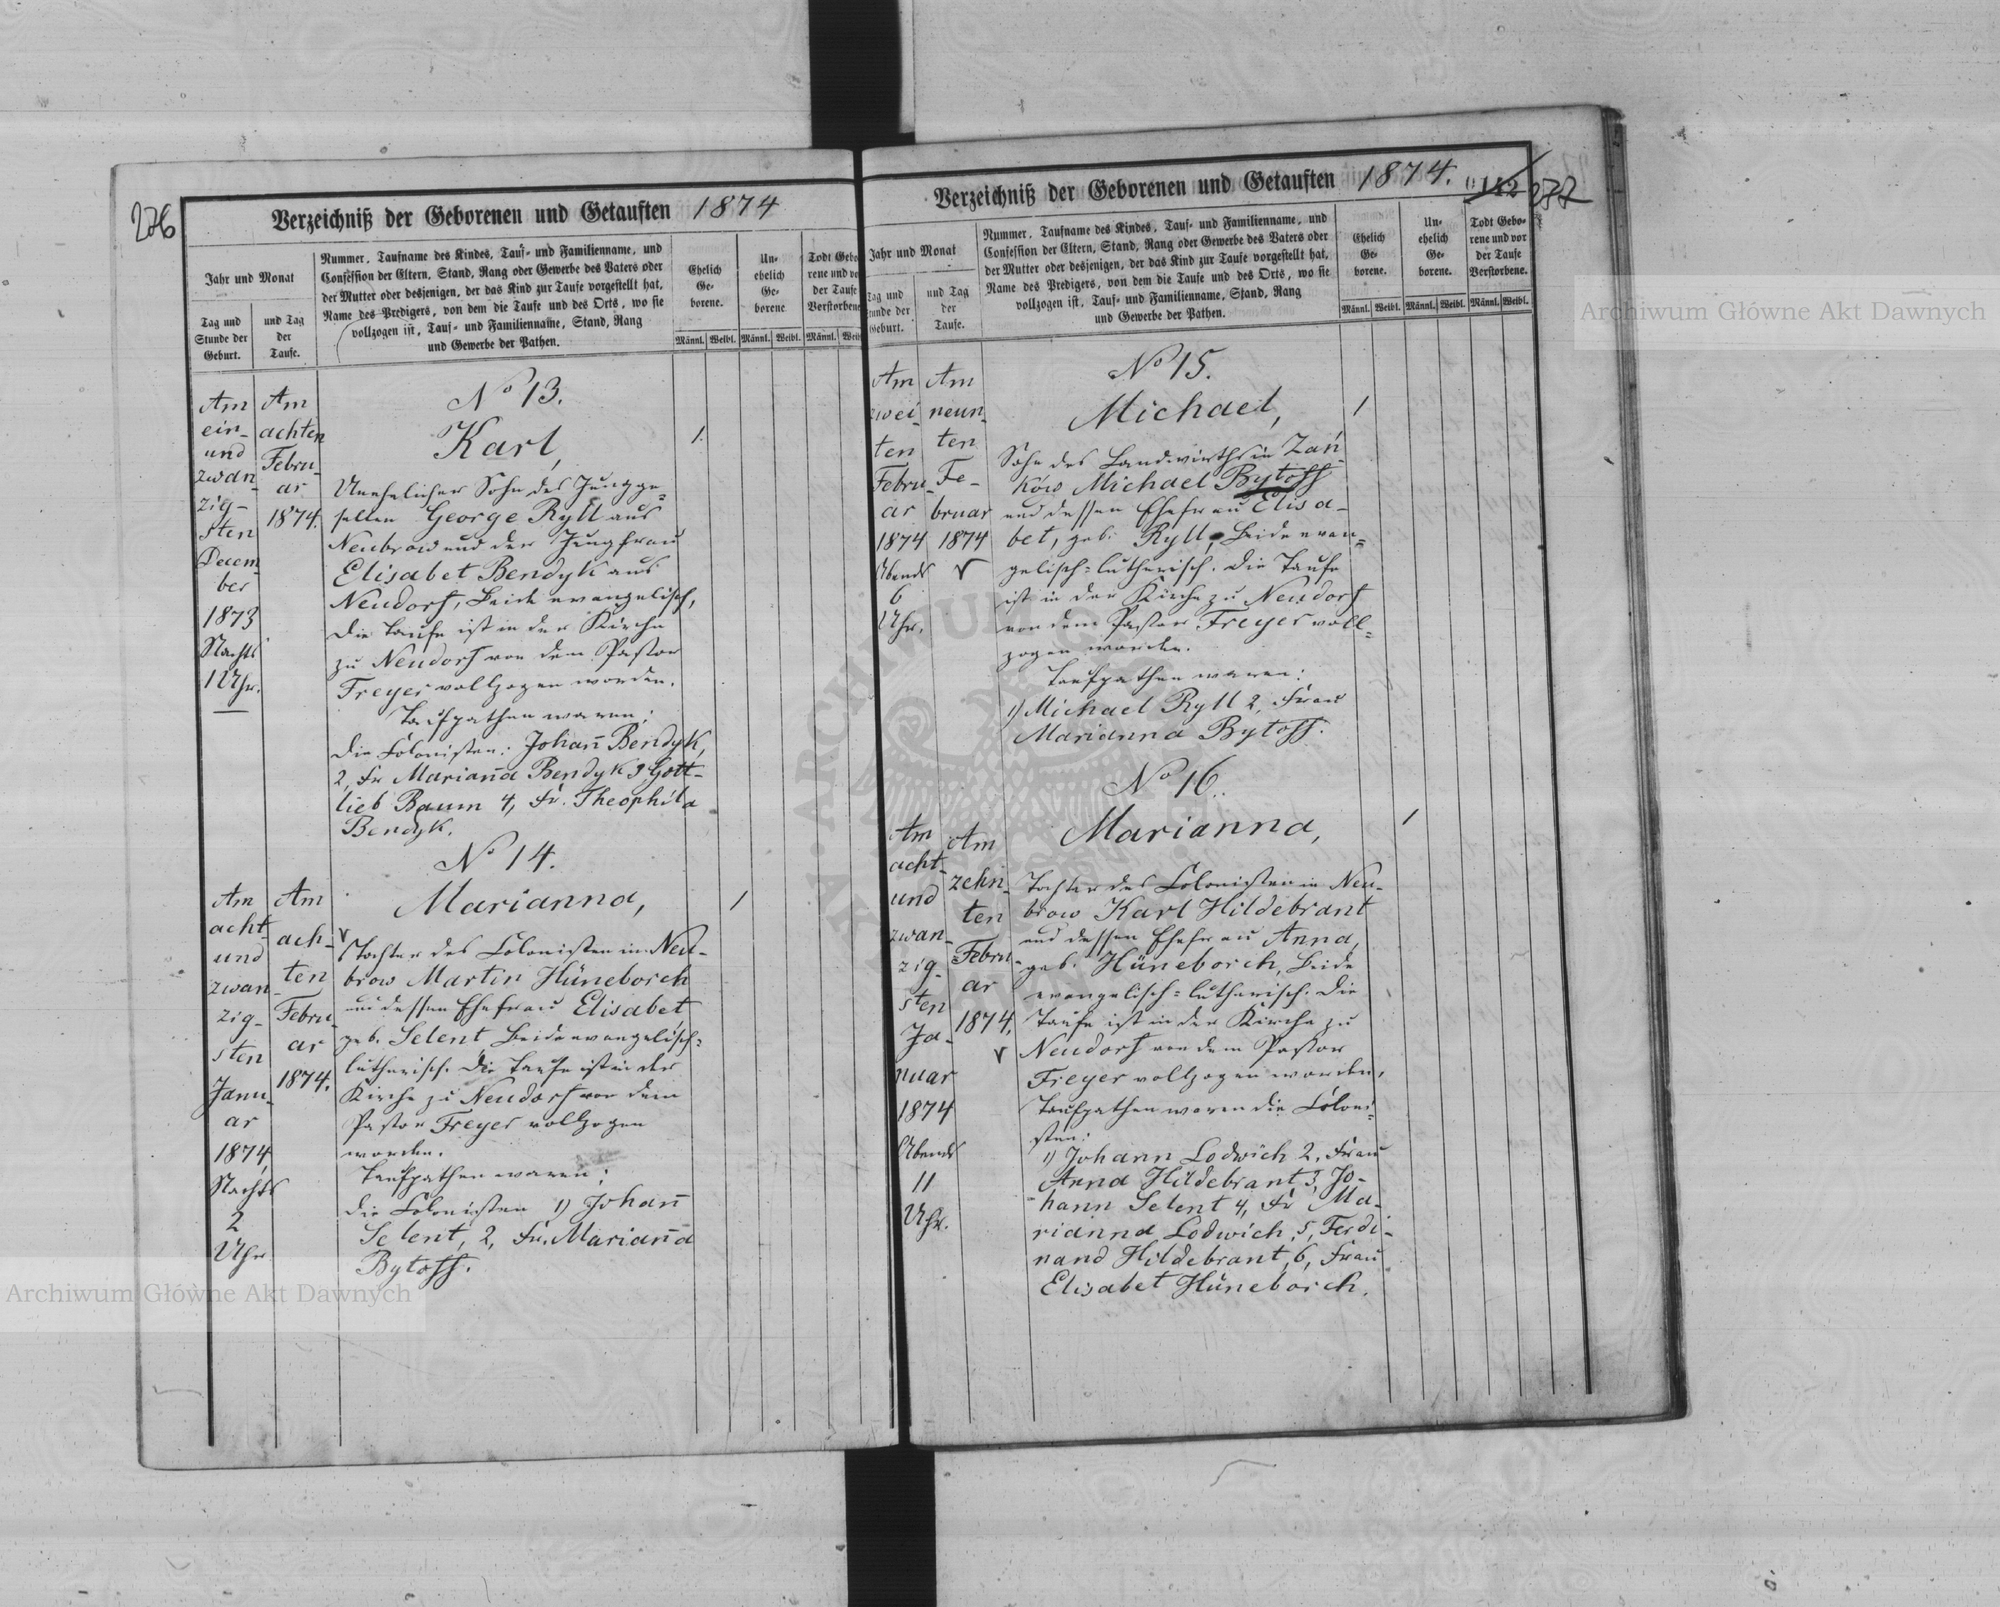 276
Verzeichniß der Geborenen und Getauften 1874
Jahr und Monat
Tag und
Stunde der
Geburt.
und Tag
der
Taufe.
Nummer, Taufname des Kindes, Tauf- und Familienname, und
Confession der Eltern, Stand, Rang oder Gewerbe des Vaters oder
der Mutter oder desjenigen, der das Kind zur Taufe vorgestellt hat,
Name des Predigers, von dem die Taufe und des Orts, wo sie
vollzogen ist, Tauf- und Familienname, Stand, Rang
und Gewerbe der Pathen.
Ehelich
Ge-
borene.
Un-
ehelich
Ge-
borene
Todt Gebo
rene und vo
der Taufe
Verstorbene
Männl. Weibl. Männl. Weibl. Männl. Weib
Am
ein-
und
zwan-
zig-
sten
Decem-
ber
1873
Nachts
1 Uhr.
Am
achten
Febru-
ar
1874.
No 13.
Karl,
1.
Unehelicher Sohn des Jungge-
sellen George Ryll aus
Neubrow und der Jungfrau
Elisabet Bendyk aus
Neudorf, Beide evangelisch,
Die Taufe ist in der Kirche
zu Neudorf von dem Pastor
Freyer vollzogen worden.
Taufpathen waren:
Die Colonisten: Johañ Bendyk,
2, Fr Mariañа Bendyk 3, Gott-
lieb Baum 4, Fr. Theophila
Bendyk.
Am
acht
und
zwan-
zig-
sten
Janu-
ar
1874
Nachts
2
Uhr
Am
ach-
ten
Febru-
ar
1874.
No 14.
Marianna,
1
Tochter des Colonisten in Neu-
brow Martin Hüneborch
und dessen Ehefrau Elisabet
geb. Selent Beide evangelisch-
lutherisch. Die Taufe ist in der
Kirche zu Neudorf von dem
Pastor Freyer vollzogen
worden.
Taufpathen waren:
Die Colonisten 1) Johañ
Selent, 2, Fr. Mariaña
Bytoff.
Verzeichniß der Geborenen und Getauften 1874.
142 277
Jahr und Monat
Tag und
tunde der
Geburt.
und Tag
der
Taufe.
Nummer, Taufname des Kindes, Tauf- und Familienname, und
Confession der Eltern, Stand, Rang oder Gewerbe des Vaters oder
der Mutter oder desjenigen, der das Kind zur Taufe vorgestellt hat,
Name des Predigers, von dem die Taufe und des Orts, wo sie
vollzogen ist, Tauf- und Familienname, Stand, Rang
und Gewerbe der Pathen.
Ehelich
Ge-
borene.
Un-
ehelich
Ge-
borene.
Todt Gebo-
rene und vor
der Taufe
Verstorbene.
Männl. Weibl. Männl. Weibl. Männl. Weibl.
Am
zwei-
ten
Febru-
ar
1874
Abends
6
Uhr.
Am
neun-
ten
Fe-
bruar
1874
No 15.
Michael,
1
Sohn des Landwirths in Zań-
ków Michael Bytoff
und dessen Ehefrau Elisa-
bet, geb. Ryll, Beide evan-
gelisch-lutherisch. Die Taufe
ist in der Kirche zu Neudorf
von dem Pastor Freyer voll-
zogen worden.
Taufpathen waren:
1) Michael Ryll 2, Frau
Marianna Bytoff.
Am
acht-
und
zwan-
zig-
sten
Ja-
nuar
1874
Abends
11
Uhr.
Am
zehn-
ten
Febru-
ar
1874.
No 16.
Marianna,
1
Tochter des Colonisten in Neu-
brow Karl Hildebrant
und dessen Ehefrau Anna,
geb. Hüneborch, Beide
evangelisch-lutherisch. Die
Taufe ist in der Kirche zu
Neudorf von dem Pastor
Freyer vollzogen worden,
Taufpathen waren die Coloni-
sten:
1) Johann Lodwich 2, Frau
Anna Hildebrant 3, Jo-
hann Selent 4, Fr Ma-
rianna Lodwich, 5, Ferdi-
nand Hildebrant, 6, Frau
Elisabet Hüneborch.
Archiwum Główne Akt Dawnych
Archiwum Główne Akt Dawnych